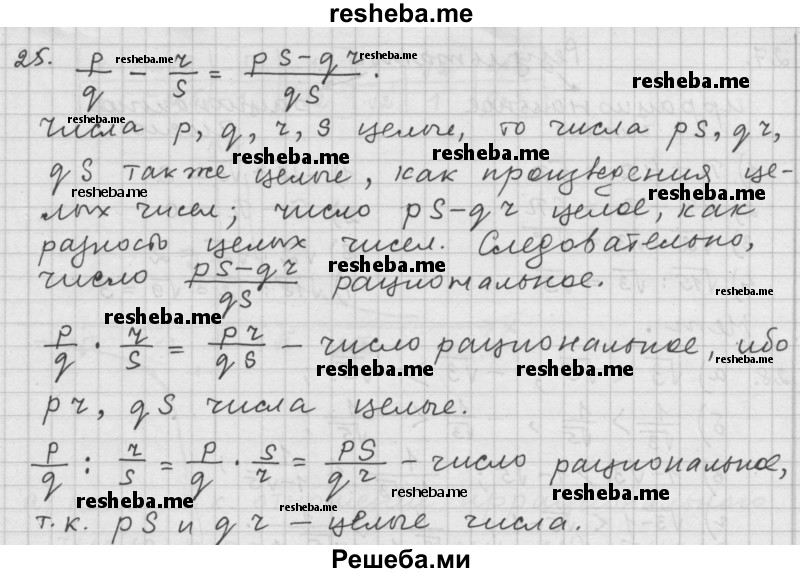 resheba.me
25. p/q − r/s = (ps − qr)/qs. resheba.me resheba.me resheba.me
числа p, q, r, s целые, то числа ps, qr,
resheba.me resheba.me
qs также целые, как произведения це-
resheba.me resheba.me
лых чисел; число ps − qr целое, как
разность целых чисел. Следовательно,
resheba.me
число (ps − qr)/qs рациональное.
resheba.me resheba.me
p/q · r/s = pr/qs − число рациональное, ибо
resheba.me resheba.me resheba.me
pr, qs числа целые.
p/q : r/s = p/q · s/r = ps/qr − число рациональное,
resheba.me resheba.me resheba.me
т.к. ps и qr − целые числа.
resheba.me
Решеба.ми